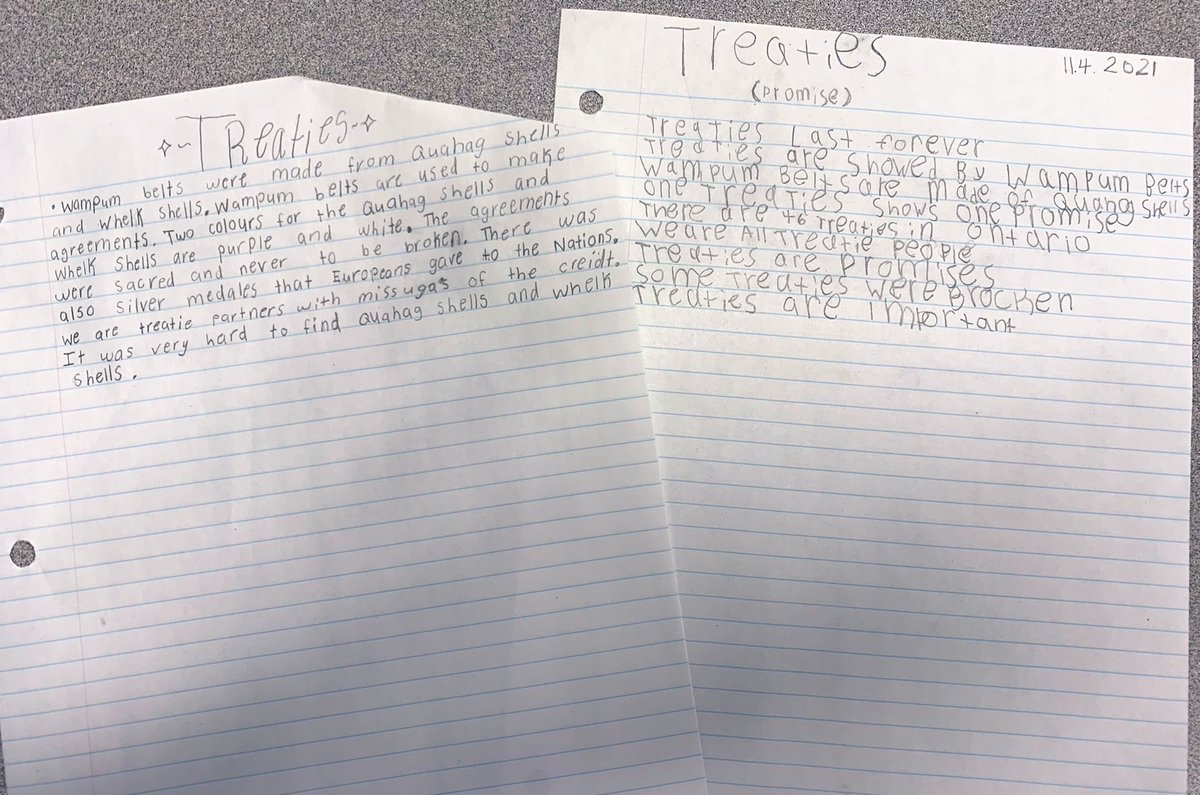 TReaties
• Wampum belts were made from Quahag shells
and whelk shells. Wampum belts are used to make
agreements. Two colours for the Quahag shells and
whelk shells are purple and white. The agreements
were sacred and never to be broken. There was
also silver medales that Europeans gave to the Nations.
We are treatie partners with missugas of the creidt.
It was very hard to find Quahag shells and whelk
shells.
Treaties
11.4. 2021
(Promise)
Treaties Last forever
Treaties are showed By Wampum Belts
Wampum Belts are made of Quahog shells
one Treaties shows one promise
There are 46 Treaties in Ontario
We are All Treatie people
Treaties are promises
Some Treaties were Brocken
Treaties are important